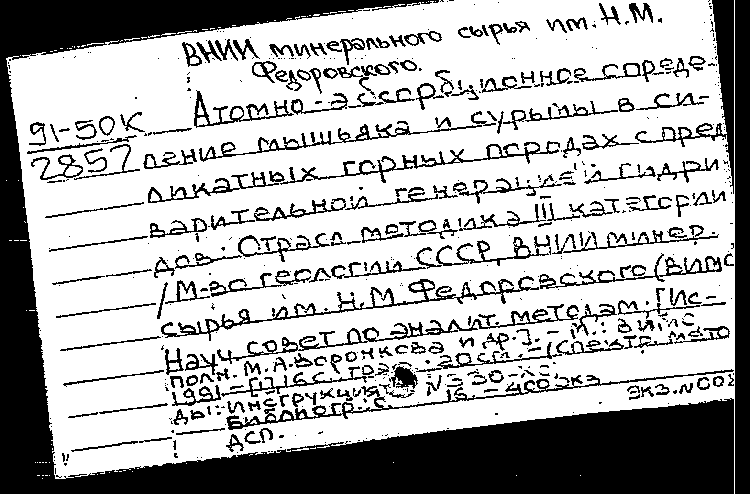 ВНИИ минерального сырья им. Н.М.
Федоровского.
91-50К
2857
Атомно-абсорбционное опреде-
ление мышьяка и сурьмы в си-
ликатных горных породах с пред
варительной генерацией гидри
дов: Отрасл методика III категории
/ М-во геологии СССР, ВНИИ минер.
сырья им. Н.М Федоровского (ВИМС
Науч. совет по аналит. методам; [Ис-
полн. М.А. Воронкова и др.]. - М.: ВИМС
1991 - [1] 16 с. : 20 см. - (Спектр. мето
ды: Инструкция № 330-ХС
Библиогр.: с. 16. - 400 экз
экз. N 008
ДСП.